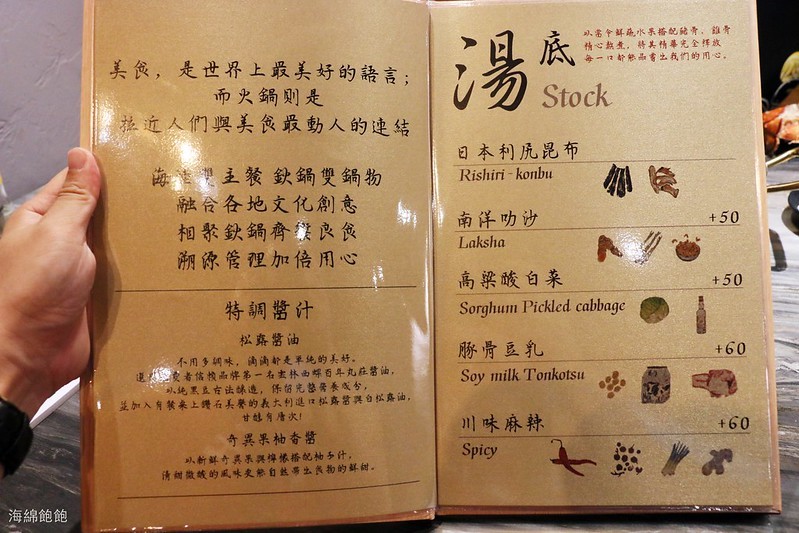 美食，是世界上最美好的語言；
而火鍋則是
拉近人們與美食最動人的連結
海陸雙主餐 欽鍋雙鍋物
融合各地文化創意
相聚欽鍋齊饗良食
溯源管理加倍用心
特調醬汁
松露醬油
不用多調味，滴滴都是單純的美好。
選用消費者信賴品牌第一名雲林西螺百年丸莊醬油，
以純黑豆古法釀造，保留完整營養成分，
並加入有餐桌上鑽石美譽的義大利進口松露醬與白松露油，
甘醇有層次！
奇異果柚香醬
以新鮮奇異果與檸檬搭配柚子汁，
清甜微酸的風味更能自然帶出食物的鮮甜。
湯底
Stock
以當令鮮蔬水果搭配豬骨、雞骨
精心熬煮，將其精華完全釋放
每一口都能品嘗出我們的用心。
日本利尻昆布
Rishiri-konbu
南洋叻沙 +50
Laksha
高粱酸白菜 +50
Sorghum Pickled cabbage
豚骨豆乳 +60
Soy milk Tonkotsu
川味麻辣 +60
Spicy
海綿飽飽